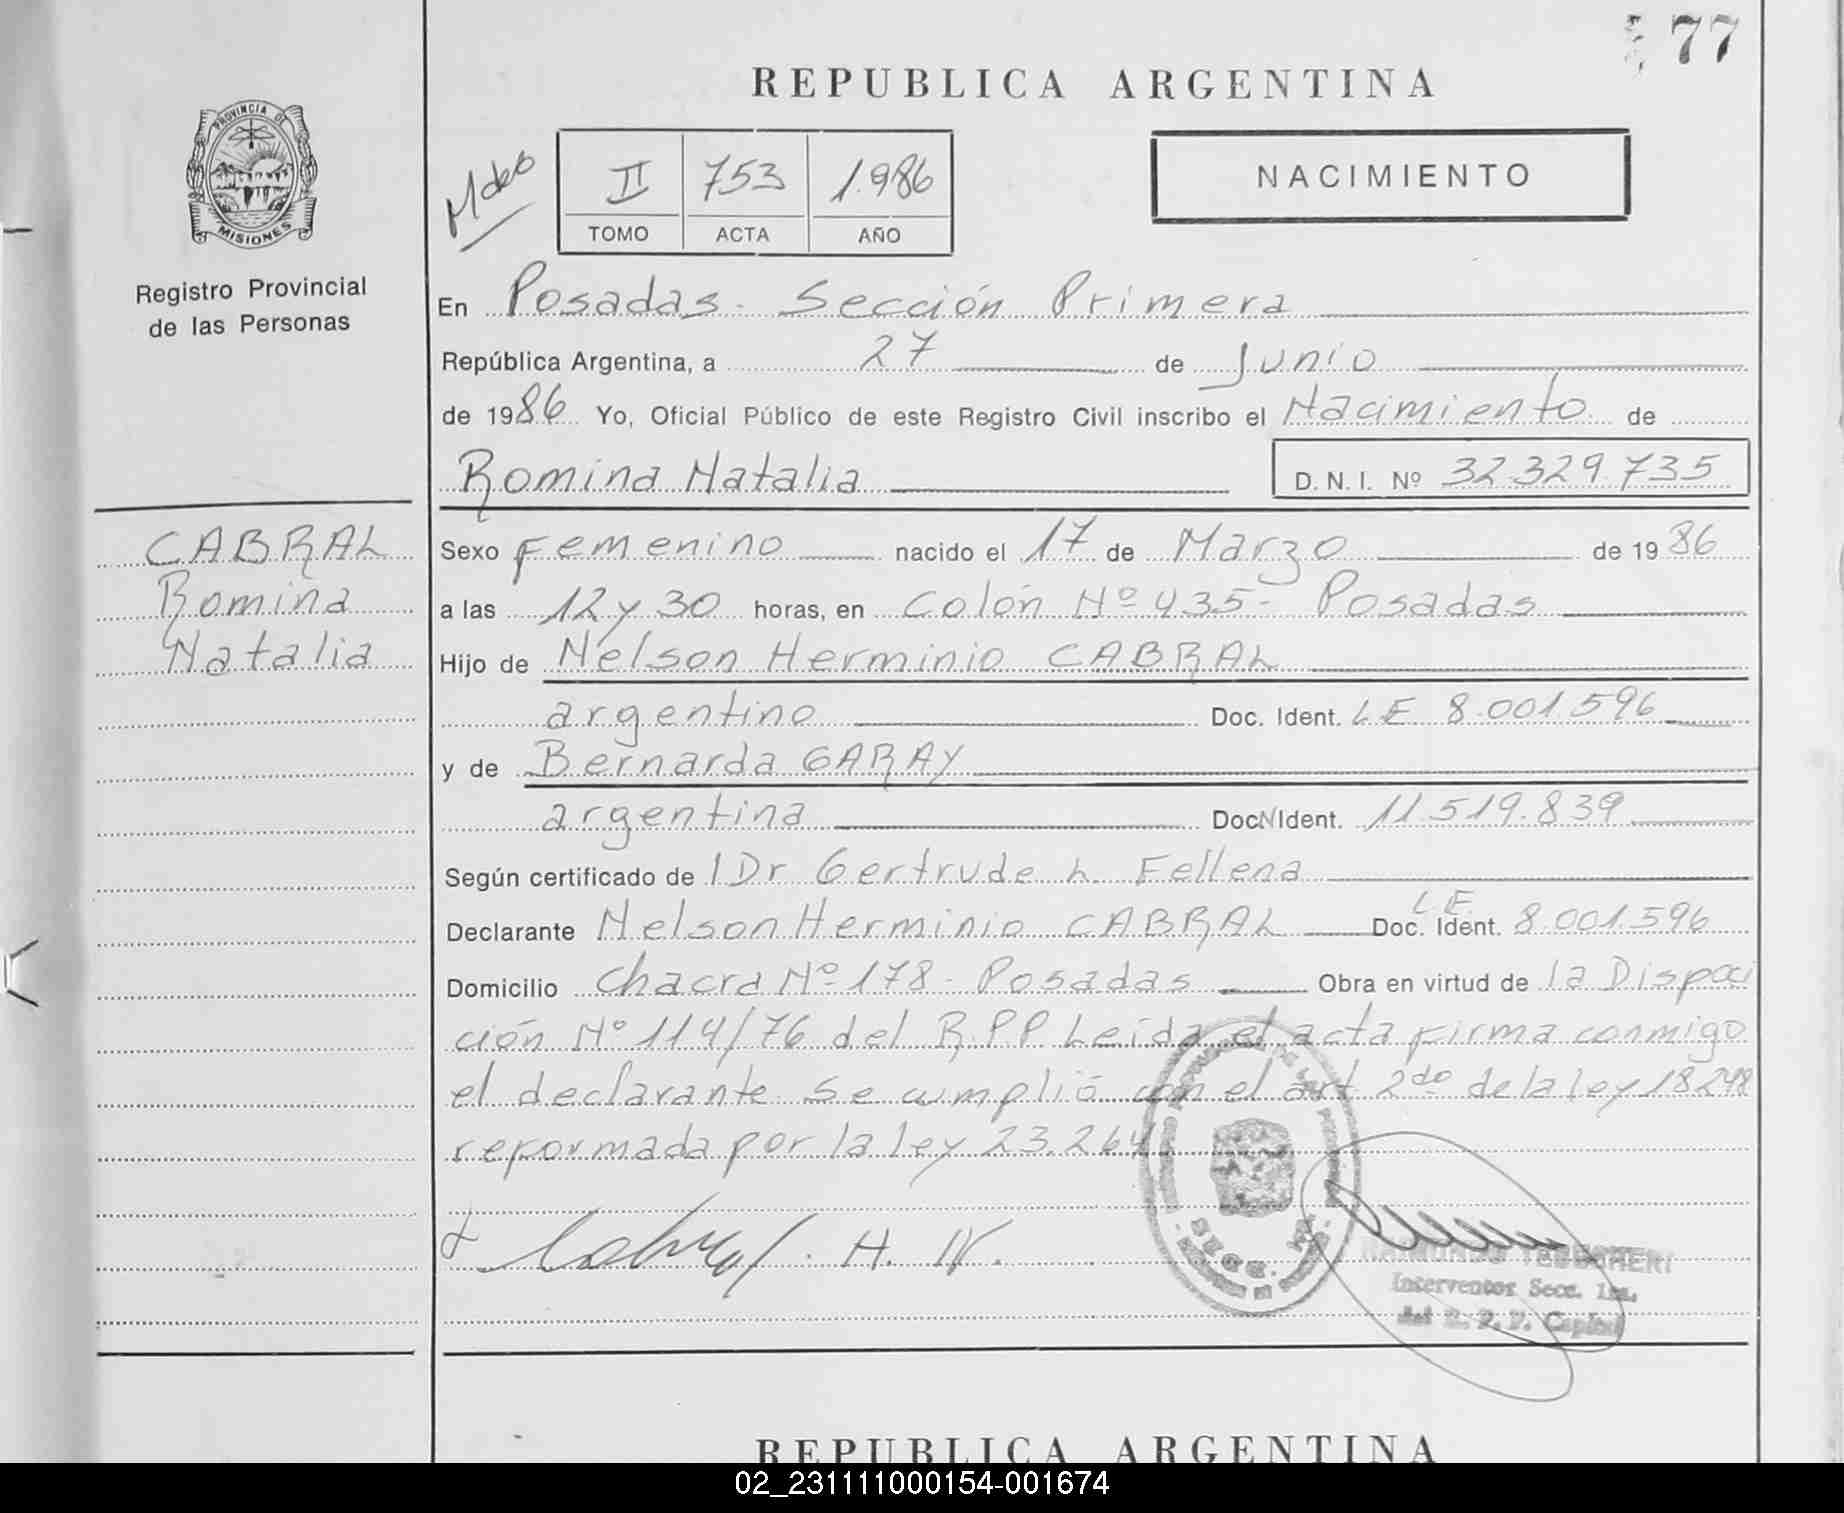 77
REPUBLICA ARGENTINA
PROVINCIA DE
MISIONES
Registro Provincial
de las Personas
II 753 1.986
TOMO ACTA AÑO
NACIMIENTO
En Posadas - Sección Primera
República Argentina, a 27 de Junio
de 1986 Yo, Oficial Público de este Registro Civil inscribo el Nacimiento de
Romina Natalia D. N. I. Nº 32.329.735
CABRAL
Romina
Natalia
Sexo Femenino nacido el 17 de Marzo de 19 86
a las 12 y 30 horas, en Colón Nº 435 - Posadas
Hijo de Nelson Herminio CABRAL
argentino Doc. Ident. LE 8.001.596
y de Bernarda GARAY
argentina Doc. Ident. 11.519.839
Según certificado de Dr Gertrude L. Fellena
Declarante Nelson Herminio CABRAL Doc. Ident. LE 8.001.596
Domicilio Chacra Nº 178 - Posadas Obra en virtud de la Disposi
ción Nº 114/76 del R.P.P. Leída el acta firma conmigo
el declarante se cumplió con el art 2do de la ley 18248
reformada por la ley 23.264
Cabral. H. N.
Interventor Secc. 1ra.
del R. P. P. Capital
REPUBLICA ARGENTINA
02_231111000154-001674